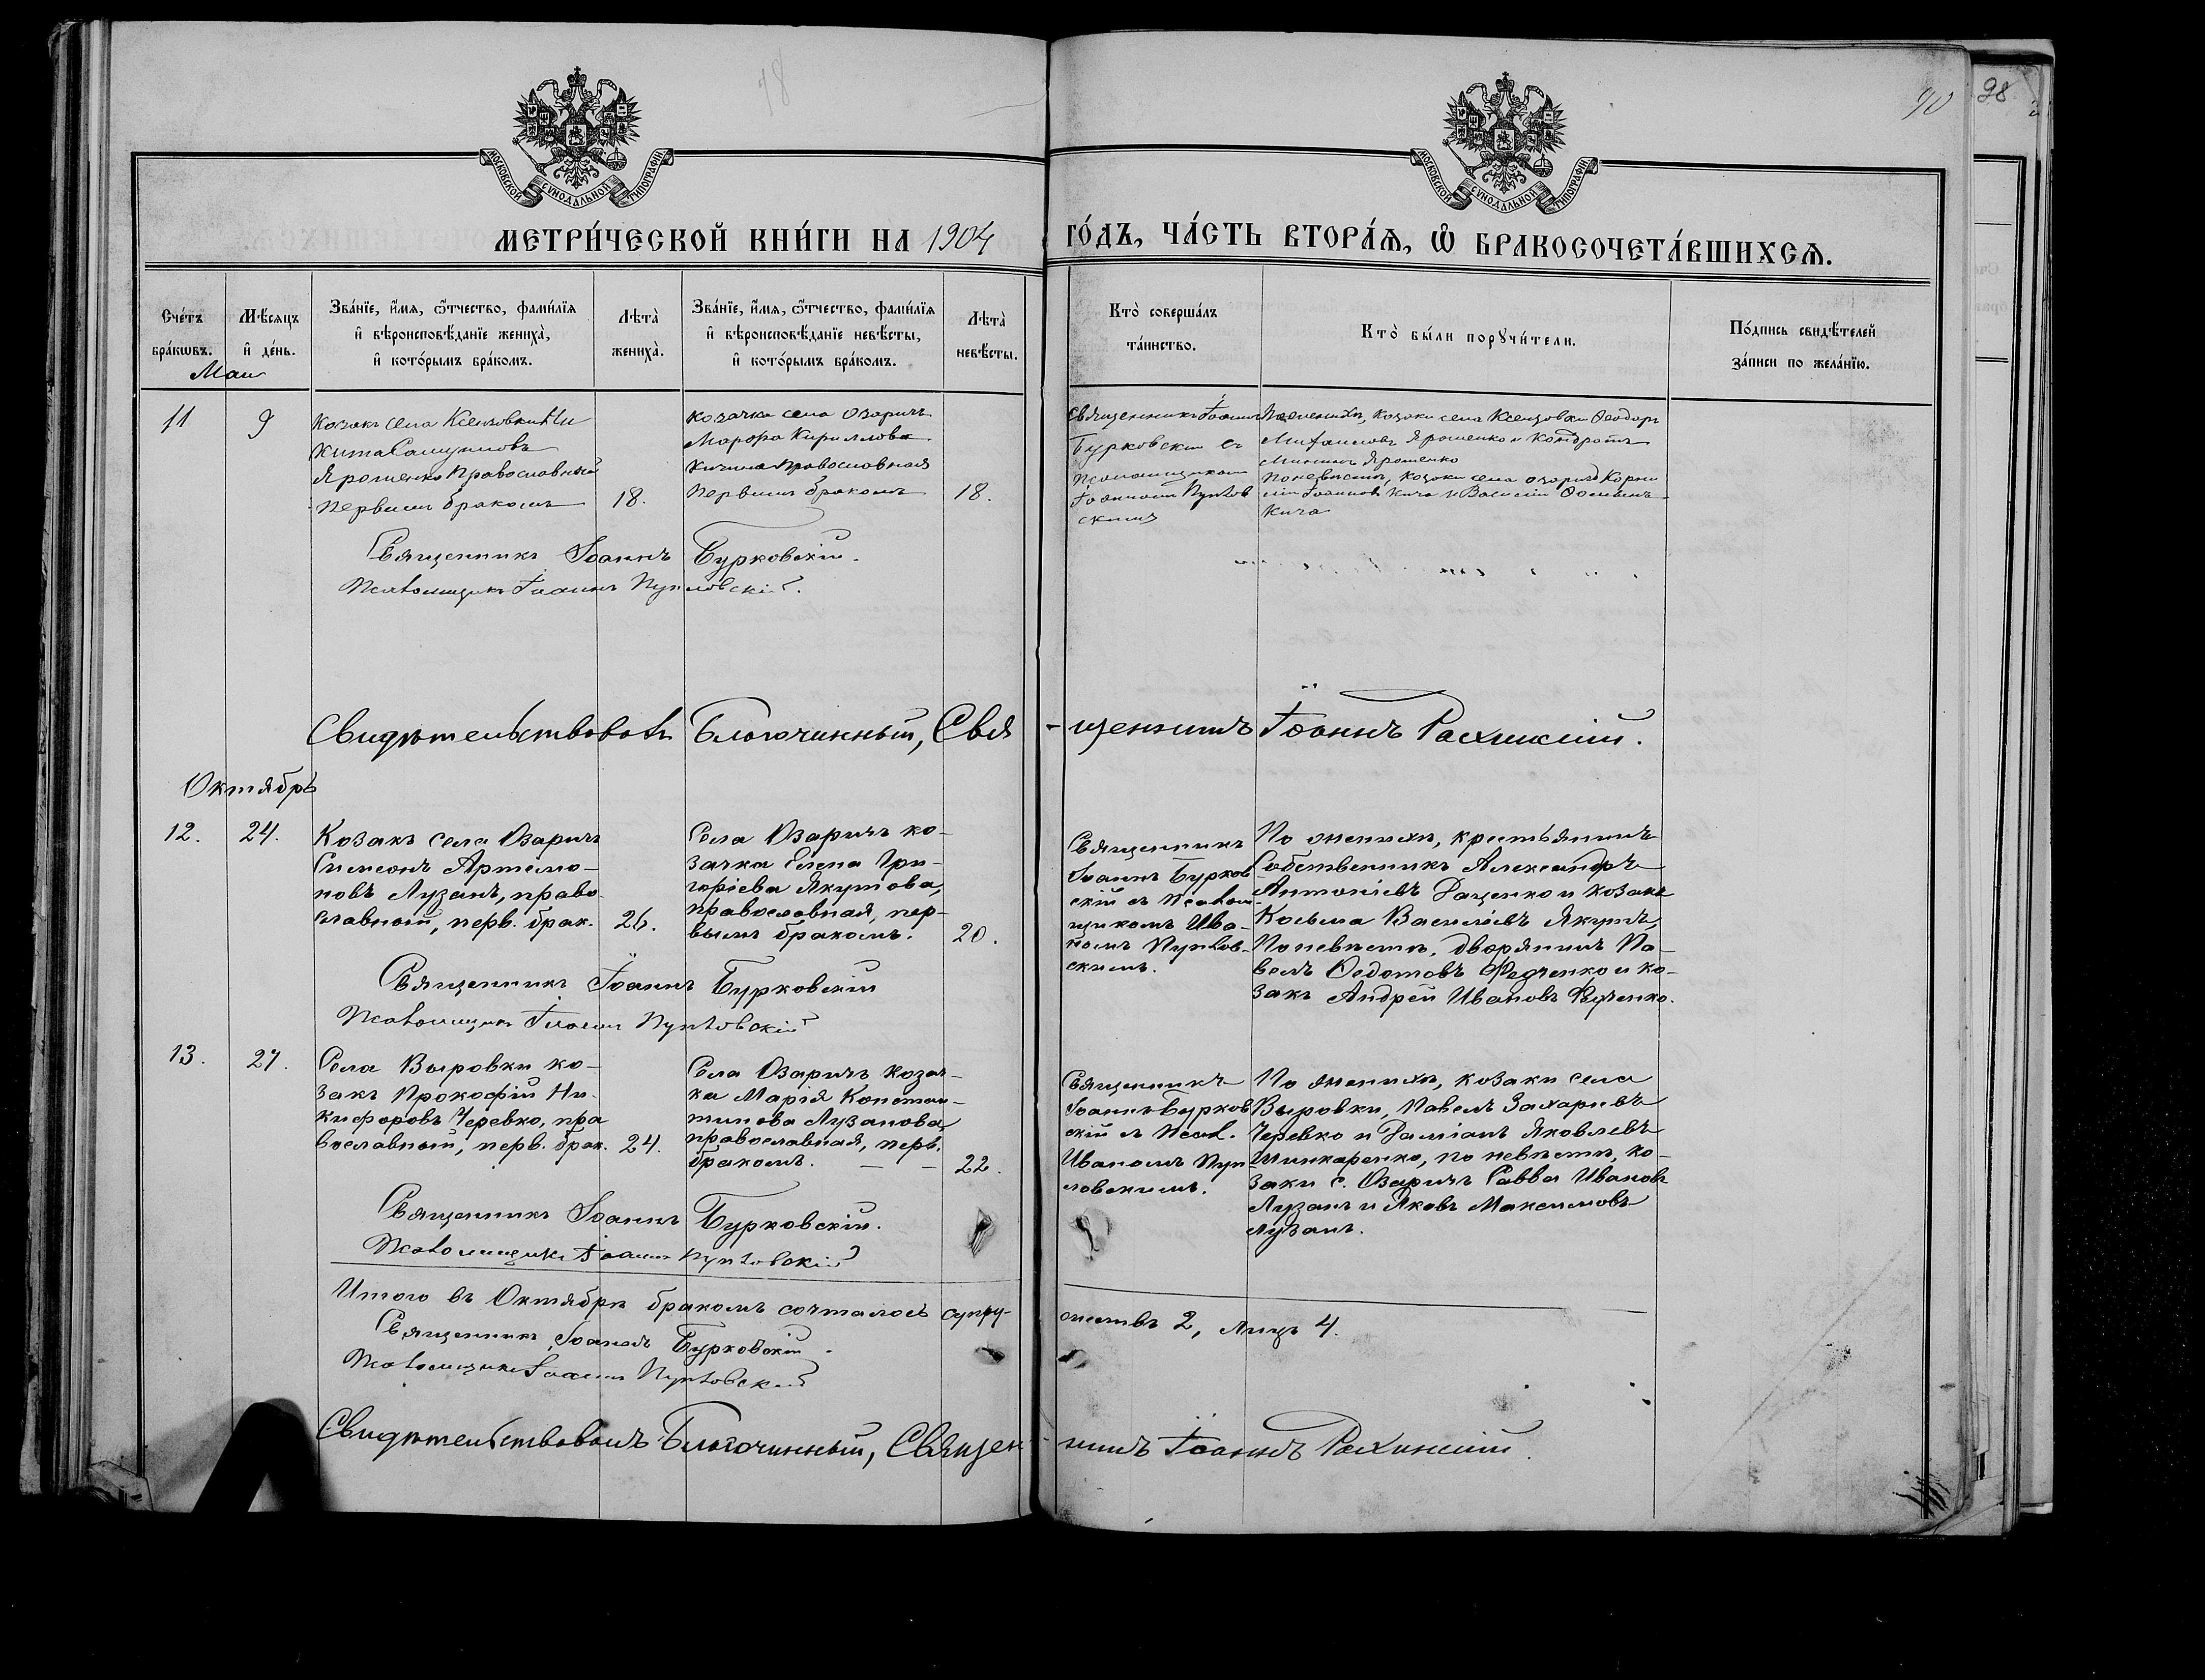 78
90
98
МОСКОВСКОЙ СѴНОДАЛЬНОЙ ТИПОГРАФІИ
МОСКОВСКОЙ СѴНОДАЛЬНОЙ ТИПОГРАФІИ
МЕТРИ́ЧЕСКОЙ КНИ́ГИ НА 1904
ГО́ДЪ, ЧА́СТЬ ВТОРА́Ѧ, Ѽ БРАКОСОЧЕТА́ВШИХСѦ.
Сче́тъ
бра́кѡвъ.
Мѣ́сяцъ
и҆ де́нь.
Зва́нїе, и҆́мѧ, ѻ҆́тчество, фами́лїѧ
и҆ вѣроисповѣ́данїе жениха̀,
и҆ кото́рымъ бра́комъ.
Лѣта̀
жениха̀.
Зва́нїе, и҆́мѧ, ѻ҆́тчество, фами́лїѧ
и҆ вѣроисповѣ́данїе невѣ́сты,
и҆ кото́рымъ бра́комъ.
Лѣта̀
невѣ́сты.
Кто̀ соверша́лъ
та́инство.
Кто̀ бы́ли порꙋчи́тели.
По́дпись свидѣ́телей
за́писи по жела́нїю.
Маи
11
9
Козакъ села Ксензовки Ни
кита Самуиловъ
Ярошенко Православный
первымъ бракомъ
18.
козачка села Озаричъ
Марфа Кириллова
Кичина Православная
первымъ бракомъ
18.
Священникъ Іоаннъ
Бурковскій съ
Псаломщикомъ
Іоанномъ Пуплов
скимъ
По женихѣ, козаки села Ксензовки Ѳеодоръ
Михаиловъ Ярошенко и Кондратъ
Мининъ Ярошенко
По невѣстѣ, козаки села Озаричъ Корни
лій Іоанновъ Кича и Василій Ѳоминъ
Кича
Священникъ Іоаннъ Бурковскій.
Псаломщикъ Іоаннъ Пупловскій.
Свидѣтельствовалъ Благочинный, Свя
- щенникъ Іоаннъ
Октябрь
12.
24.
Козакъ села Озаричъ
Симеонъ Артемо-
новъ Лузанъ, право
славный, перв. брак.
26.
Села Озаричъ ко-
зачка Елена Гри-
горіева Якутова,
православная, пер-
вымъ бракомъ.
20.
Священникъ
Іоаннъ Бурков
скій съ Псалом
щикомъ Ива-
номъ Пуплов-
скимъ.
По женихѣ, крестьянинъ
Собственникъ Александръ
Антоніевъ Даценко и козакъ
Косьма Василіевъ Якутъ,
По невѣстѣ, дворянинъ Па-
велъ Ѳедотовъ Федченко и ко-
закъ Андрей Ивановъ Федченко.
Священникъ Іоаннъ Бурковскій
Псаломщикъ Іоаннъ Пупловскій
13.
27.
Села Выровки ко-
закъ Прокофій Ни-
кифоровъ Черевко, пра
вославный, перв. брак.
24.
Села Озаричъ козач-
ка Марія Констан-
тинова Лузанова,
православная, перв.
бракомъ. — —
22.
Священникъ
Іоаннъ Бурков
скій съ Псал.
Иваномъ Пуп
ловскимъ.
По женихѣ, козаки села
Выровки, Павелъ Захаріевъ
Черевко и Даміанъ Яковлевъ
Шинкаренко, по невѣстѣ, ко-
заки с. Озаричъ Савва Ивановъ
Лузанъ и Яковъ Максимовъ
Лузанъ.
Священникъ Іоаннъ Бурковскій.
Псаломщикъ Іоаннъ Пупловскій
Итого въ Октябрѣ бракомъ сочталось супру-
жествъ 2, лицъ 4.
Священникъ Іоаннъ Бурковскій.
Псаломщикъ Іоаннъ Пупловскій
Свидѣтельствовалъ Благочинный, Священ
никъ Іоаннъ